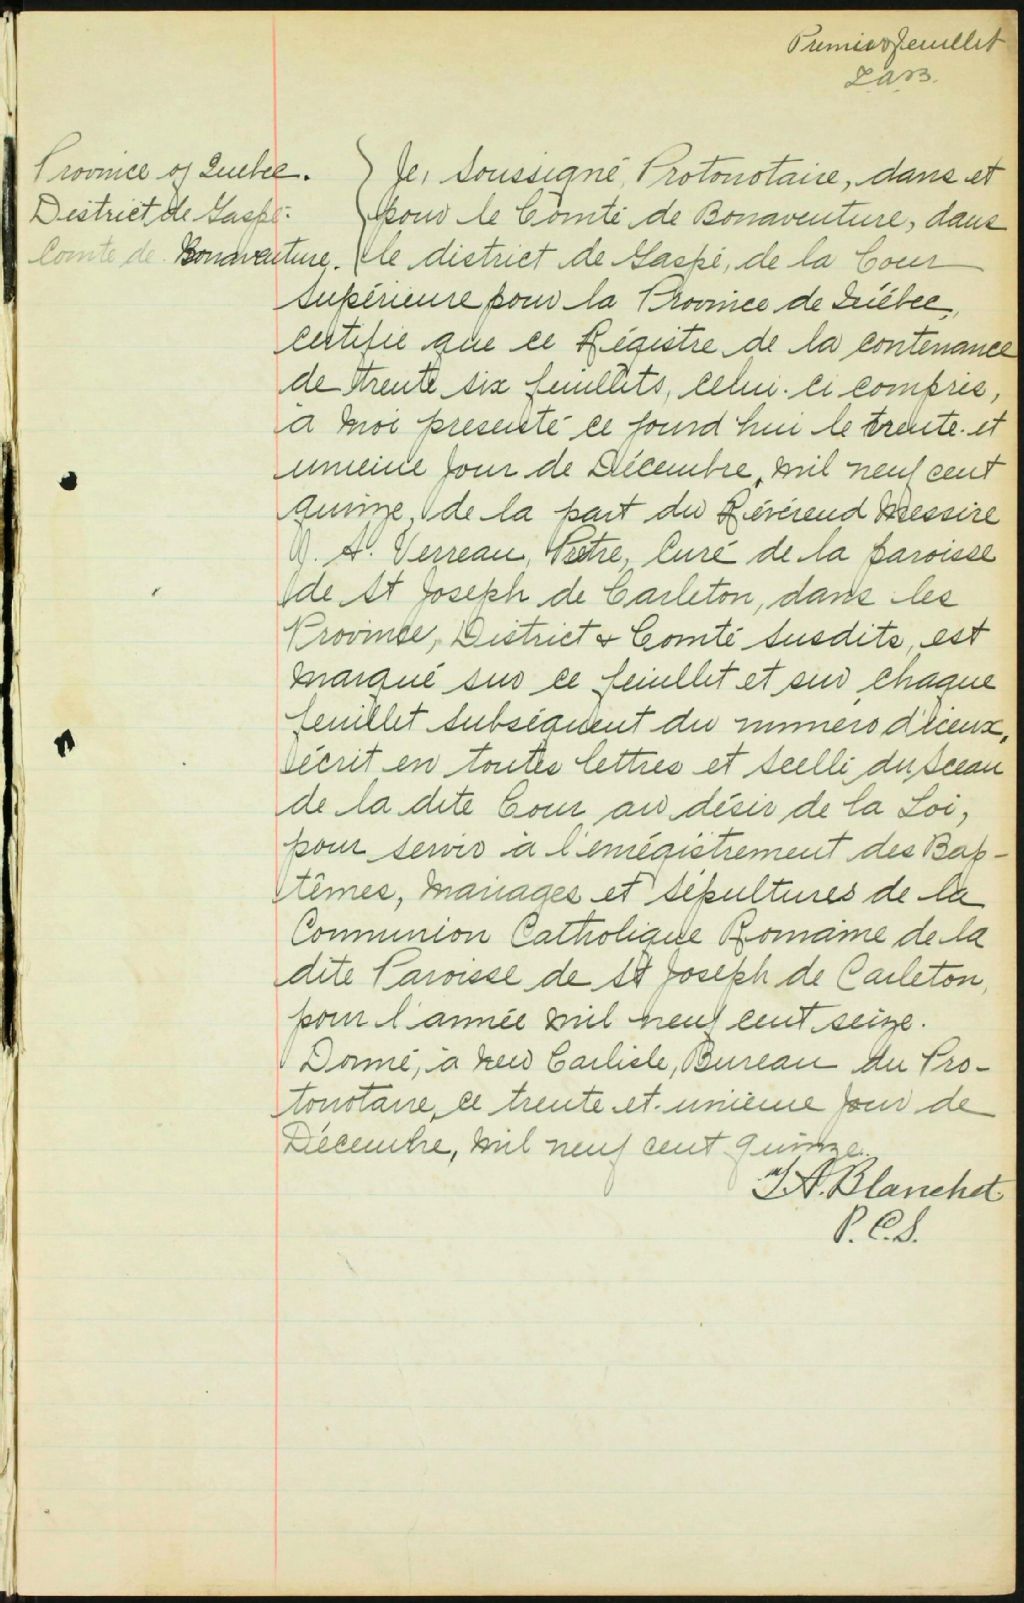 Premier feuillet
Province of Quebec.
District de Gaspé.
Comté de Bonaventure.
Je, Soussigné, Protonotaire, dans et
pour le Comté de Bonaventure, dans
le district de Gaspé, de la Cour
Supérieure pour la Province de Québec,
certifie que ce Régistre de la contenance
de trente six feuillets, celui-ci compris,
à moi presenté ce jourd'hui le trente-et
unieme jour de Décembre, mil neuf cent
quinze, de la part du Révérend Messire
A. Verreau, Prêtre, Curé de la paroisse
de St Joseph de Carleton, dans les
Province, District & Comté Susdits, est
marqué sur ce feuillet et sur chaque
feuillet subséquent du numéro d'iceux,
écrit en toutes lettres et scellé du Sceau
de la dite Cour au désir de la Loi,
pour servir à l'enrégistrement des Bap-
têmes, Mariages et Sépultures de la
Communion Catholique Romaine de la
dite Paroisse de St Joseph de Carleton,
pour l'année mil neuf cent seize.
Donné, à New Carlisle, Bureau du Pro-
tonotaire, ce trente-et-unieme jour de
Décembre, mil neuf cent quinze.
A. Blanchet
P.C.S.